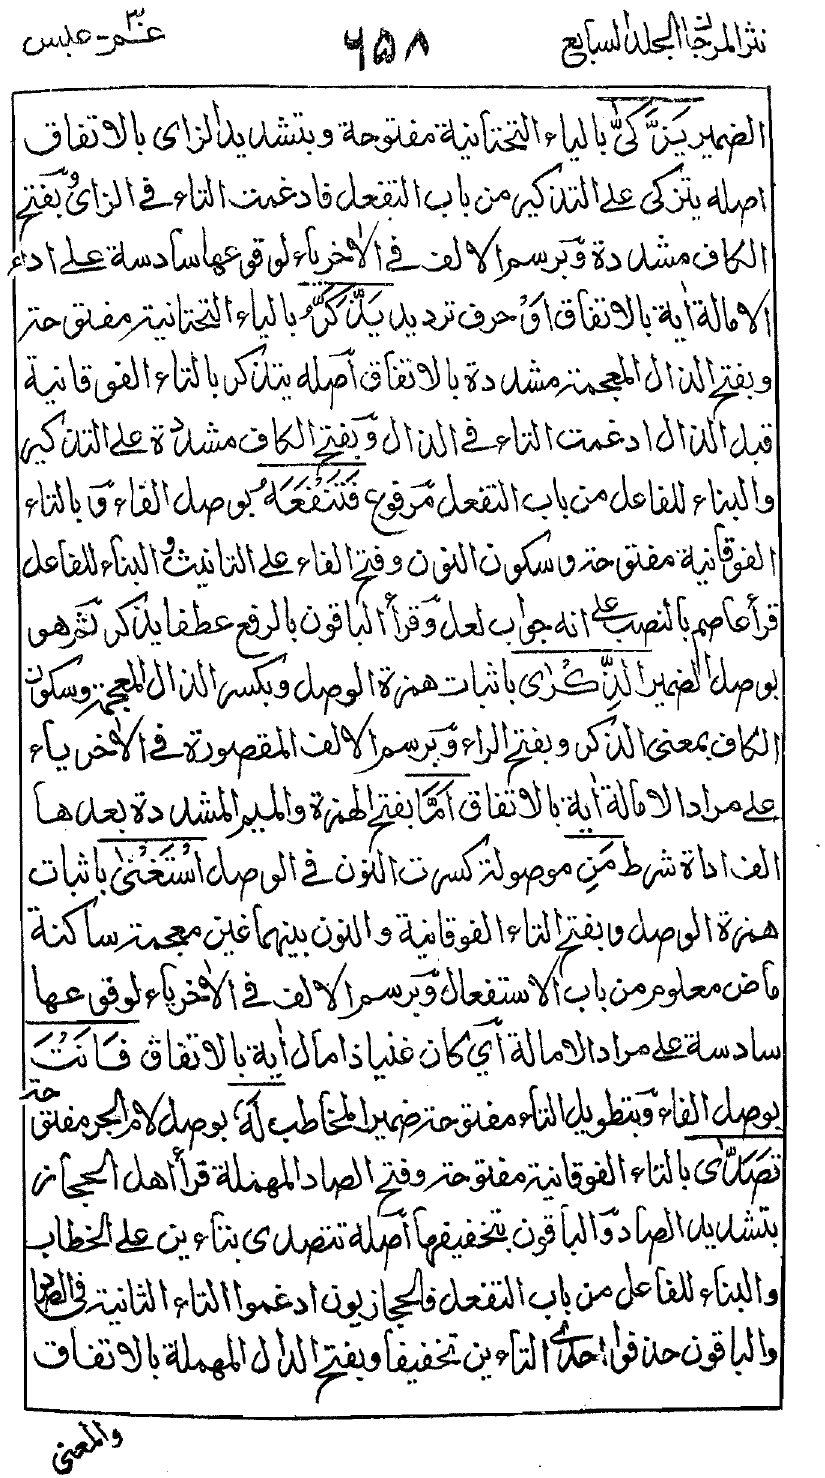 نثر المرجان المجلد السابع
٦٥٨
عم ٣٠ عبس
الضمير يَزَّكّٰىٓ بالياء التحتانية مفتوحة وبتشديد الزاى بالاتفاق
اصله يتزكى على التذكير من باب التفعل فادغمت التاء فى الزاى وبفتح
الكاف مشددة وبرسم الالف فى الاٰخر ياء لوقوعها سادسة على اداء
الامالة اٰية بالاتفاق اَوْ حرف ترديد يَذَّكَّرُ بالياء التحتانية مفتوحة
وبفتح الذال المعجمة مشددة بالاتفاق اصله يتذكر بالتاء الفوقانية
قبل الذال ادغمت التاء فى الذال وبفتح الكاف مشددة على التذكير
والبناء للفاعل من باب التفعل مرفوع فَتَنْفَعَهُ بوصل الفاء وبالتاء
الفوقانية مفتوحة وسكون النون وفتح الفاء على التانيث والبناء للفاعل
قرأ عاصم بالنصب على انه جواب لعل وقرأ الباقون بالرفع عطفا يذكر ثم هو
بوصل الضمير الذِّكْرٰى باثبات همزة الوصل وبكسر الذال المعجمة وسكون
الكاف بمعنى الذكر وبفتح الراء وبرسم الالف المقصورة فى الاٰخر ياء
على مراد الامالة اٰية بالاتفاق اَمَّا بفتح الهمزة والميم المشددة بعدها
الف اداة شرط مَنِ موصولة كسرت النون فى الوصل اسْتَغْنٰى باثبات
همزة الوصل وبفتح التاء الفوقانية والنون بينهما غين معجمة ساكنة
ماض معلوم من باب الاستفعال وبرسم الالف فى الاٰخر ياء لوقوعها
سادسة على مراد الامالة اى كان غنيا ذا مال اٰية بالاتفاق فَاَنْتَ
بوصل الفاء وبتطويل التاء مفتوحة ضمير المخاطب لَهٗ بوصل لام الجر مفتوحة
تَصَدّٰى بالتاء الفوقانية مفتوحة وفتح الصاد المهملة قرأ اهل الحجاز
بتشديد الصاد والباقون بتخفيفها اصله تتصدى بتاءين على الخطاب
والبناء للفاعل من باب التفعل فالحجازيون ادغموا التاء الثانية فى الصاد
والباقون حذفوا احدى التاءين تخفيفا وبفتح الدال المهملة بالاتفاق
والمعنى